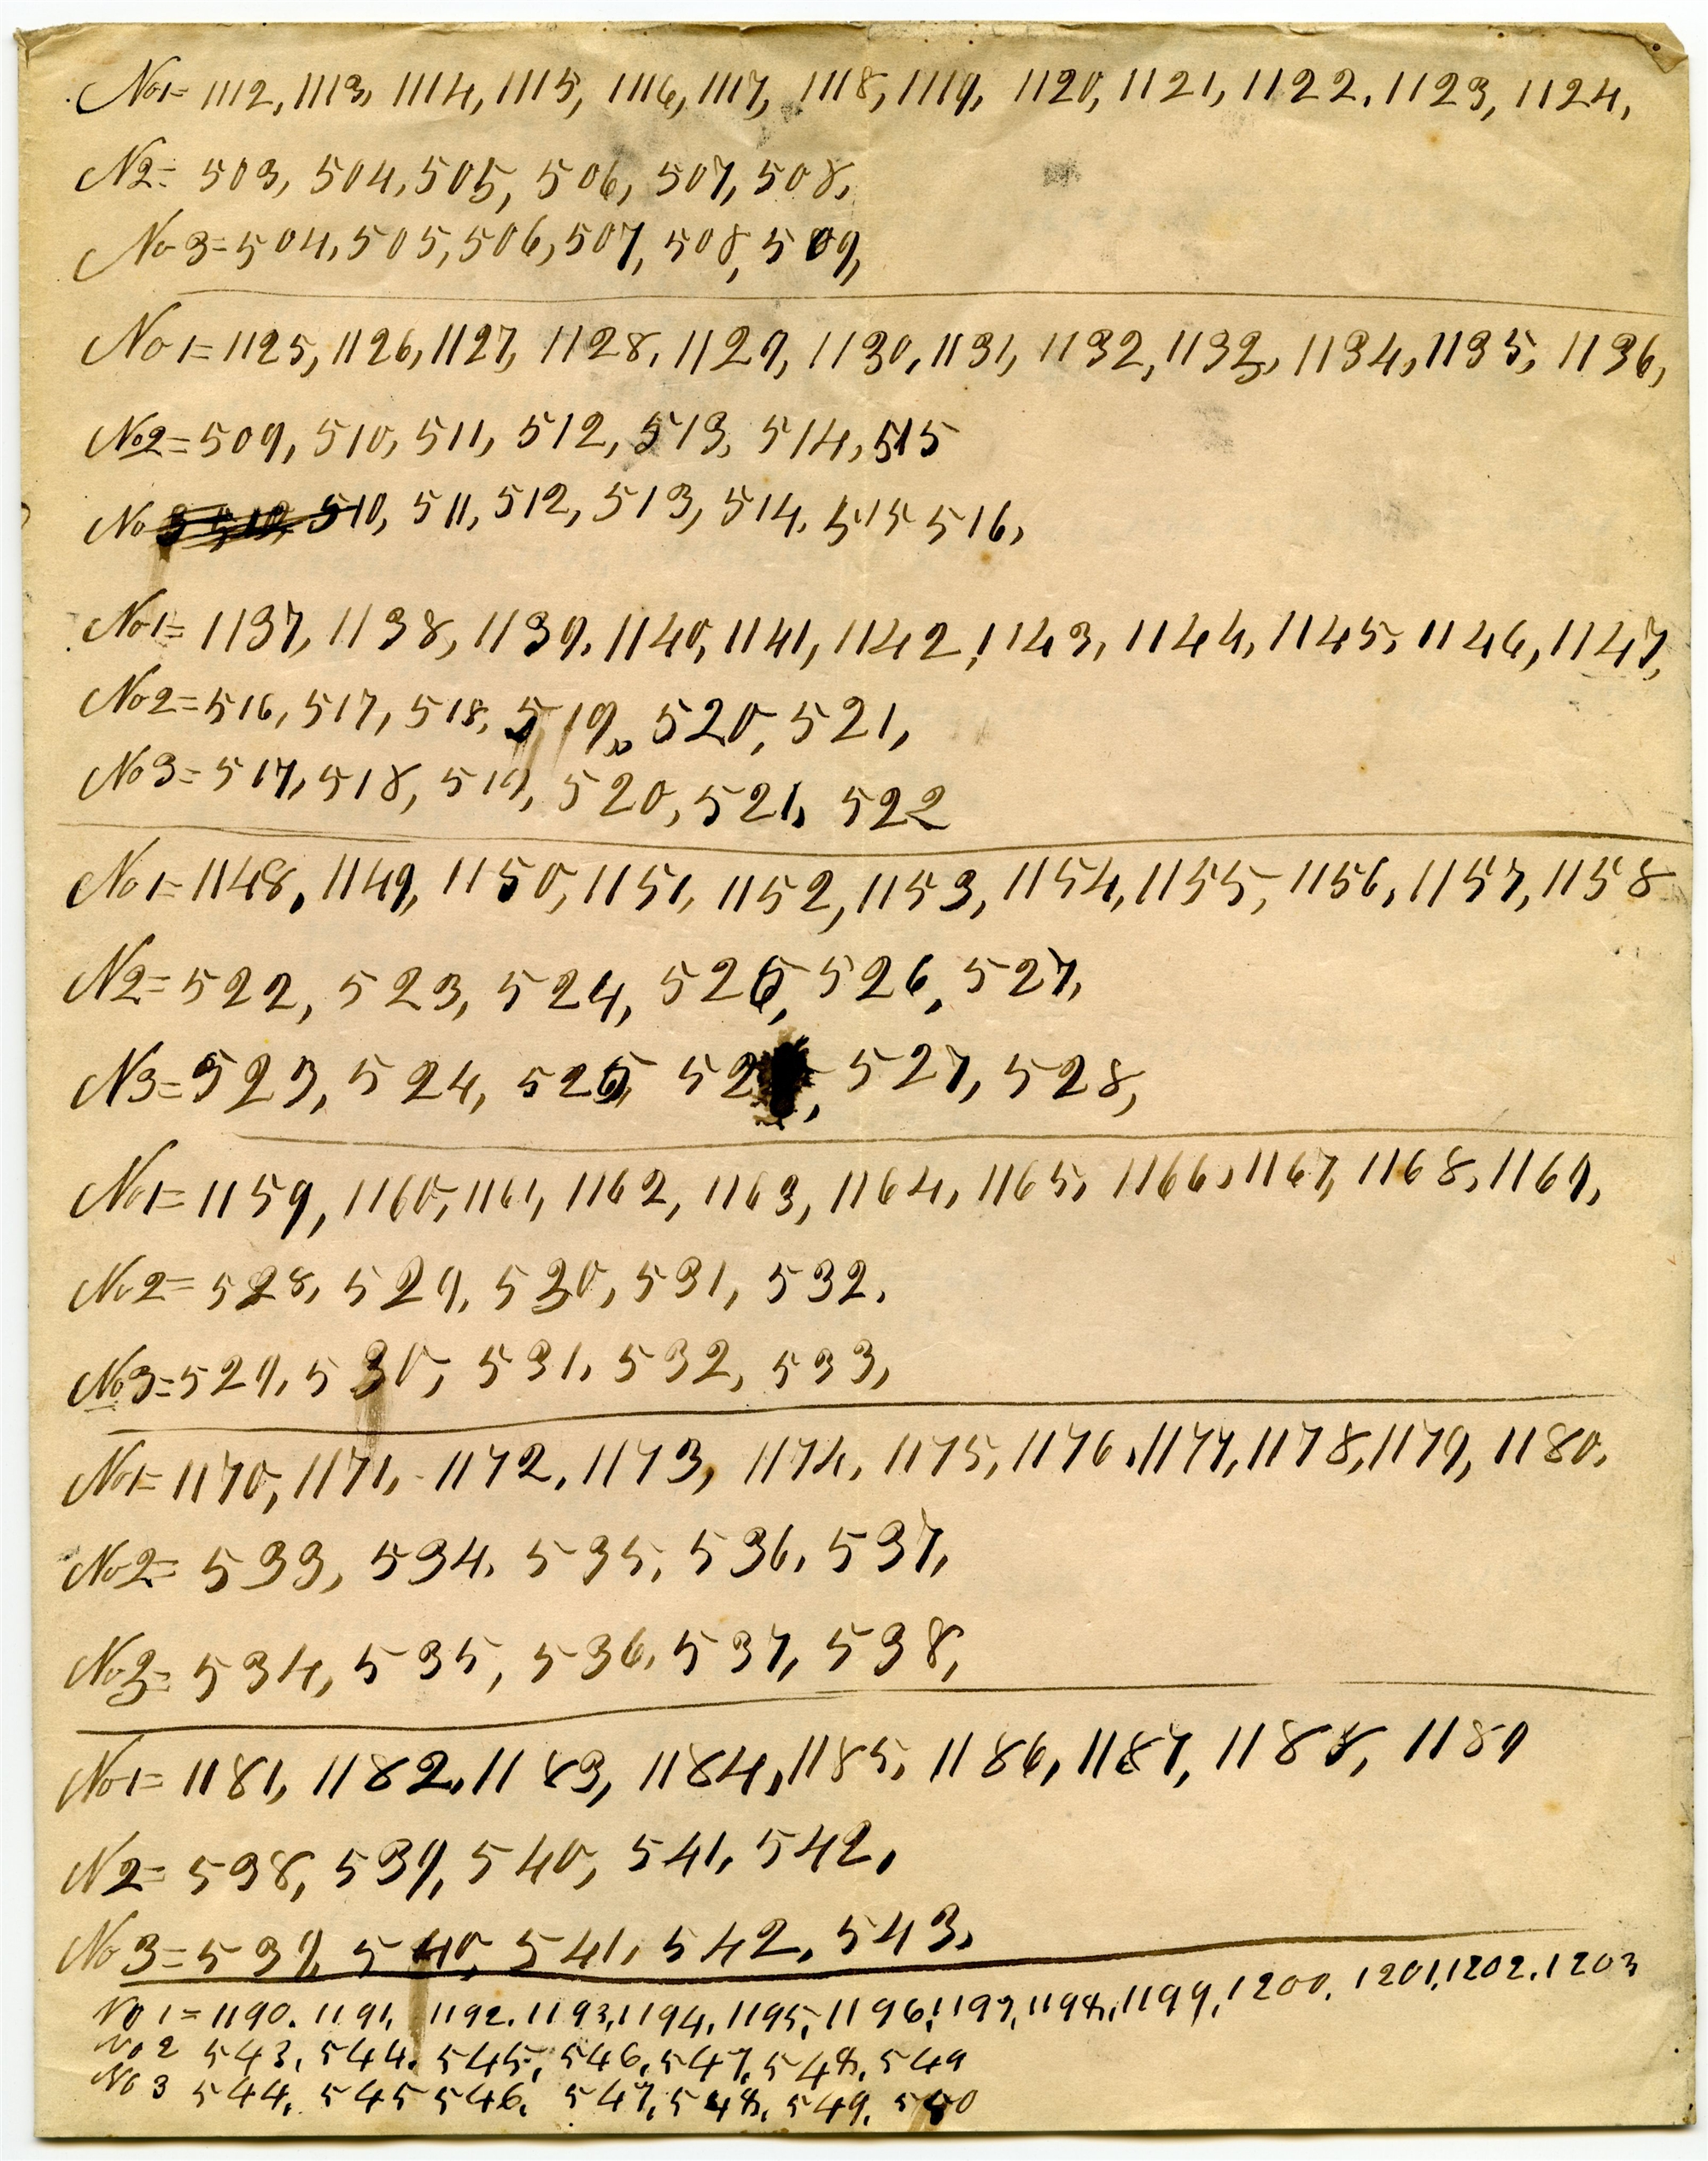 No 1= 1112, 1113, 1114, 1115, 1116, 1117, 1118, 1119, 1120, 1121, 1122, 1123, 1124,
N2= 503, 504, 505, 506, 507, 508,
No 3= 504, 505, 506, 507, 508, 509,
No 1= 1125, 1126, 1127, 1128, 1129, 1130, 1131, 1132, 1133, 1134, 1135, 1136,
No2= 509, 510, 511, 512, 513, 514, 515
No 510, 511, 512, 513, 514, 515 516,
No1= 1137, 1138, 1139, 1140, 1141, 1142, 1143, 1144, 1145, 1146, 1147,
No2= 516, 517, 518, 519, 520, 521,
No 3= 517, 518, 519, 520, 521, 522
No 1= 1148, 1149, 1150, 1151, 1152, 1153, 1154, 1155, 1156, 1157, 1158
N2= 522, 523, 524, 525, 526, 527,
N3= 523, 524, 525 52 , 527, 528,
No1= 1159, 1160, 1161, 1162, 1163, 1164, 1165, 1166, 1167, 1168, 1169,
No2= 528, 529, 530, 531, 532,
No3= 529, 530, 531, 532, 533,
No1= 1170, 1171, 1172, 1173, 1174, 1175, 1176, 1177, 1178, 1179, 1180,
No2= 533, 534, 535, 536, 537,
No3= 534, 535, 536, 537, 538,
No 1= 1181, 1182, 1183, 1184, 1185, 1186, 1187, 1188, 1189
N2= 538, 539, 540, 541, 542,
No 3= 539, 540, 541, 542, 543,
No 1= 1190. 1191, 1192. 1193, 1194, 1195, 1196, 1197, 1198, 1199, 1200, 1201, 1202, 1203
No 2 543, 544. 545, 546, 547, 548, 549
No 3 544, 545 546, 547, 548, 549, 550